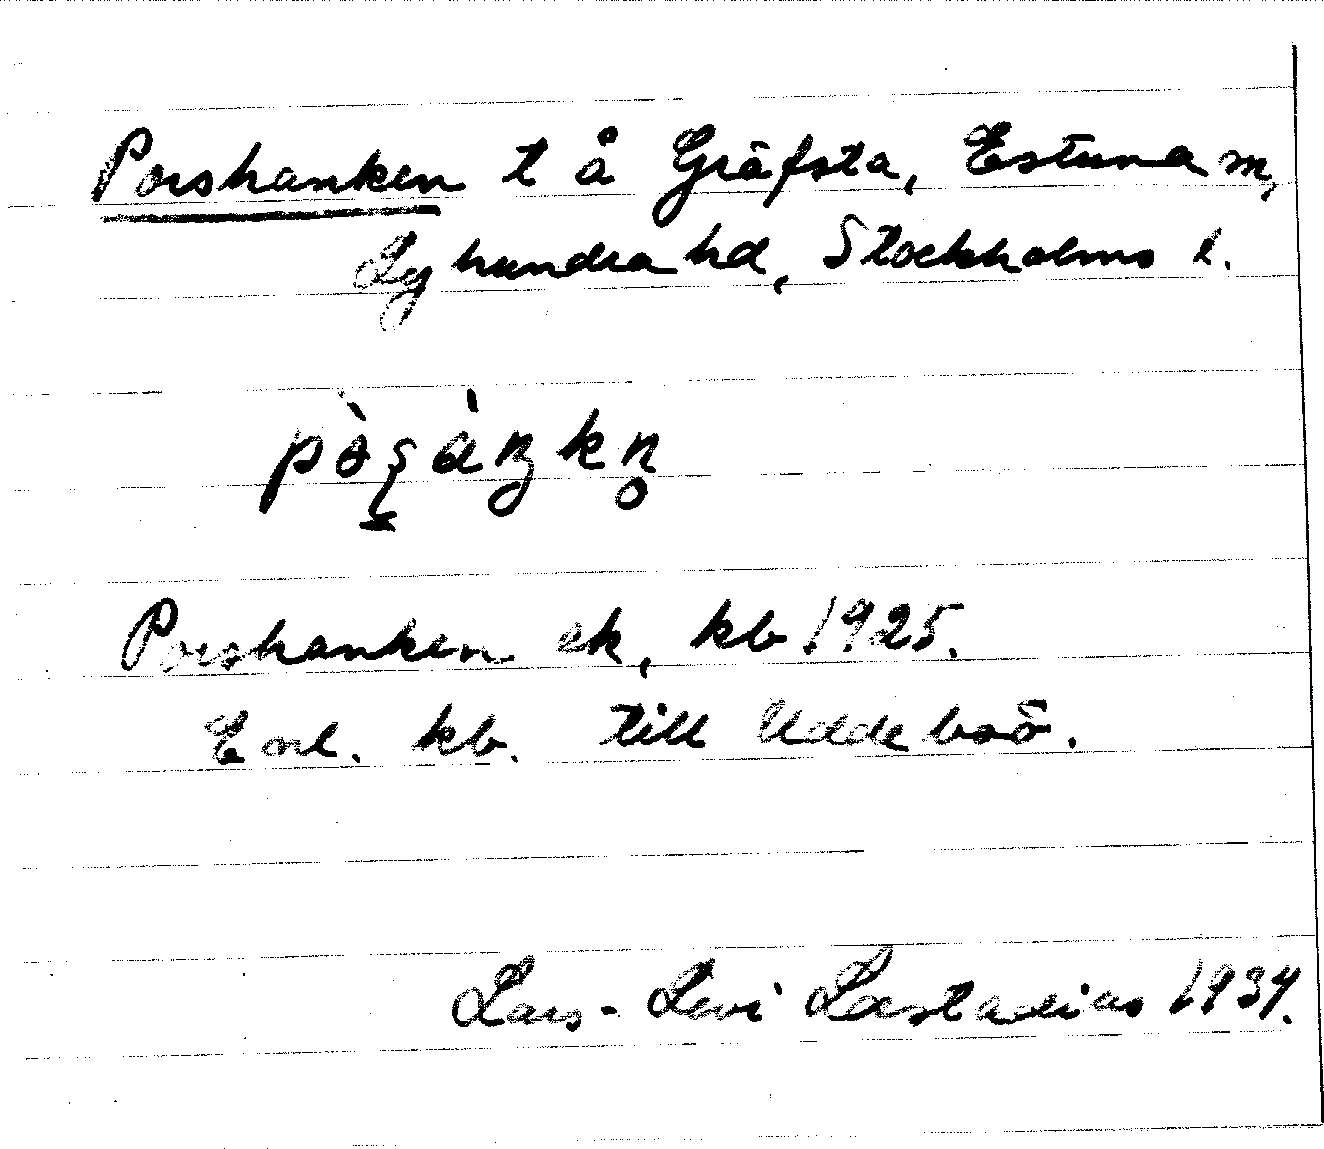 Porshanken t å Gräfsta, Estuna sn,
Lyhundra hd, Stockholms l.
Porshanken ek, kb 1925.
Enl. kb. till Uddeboö.
Lars-Levi Læstadius 1934.